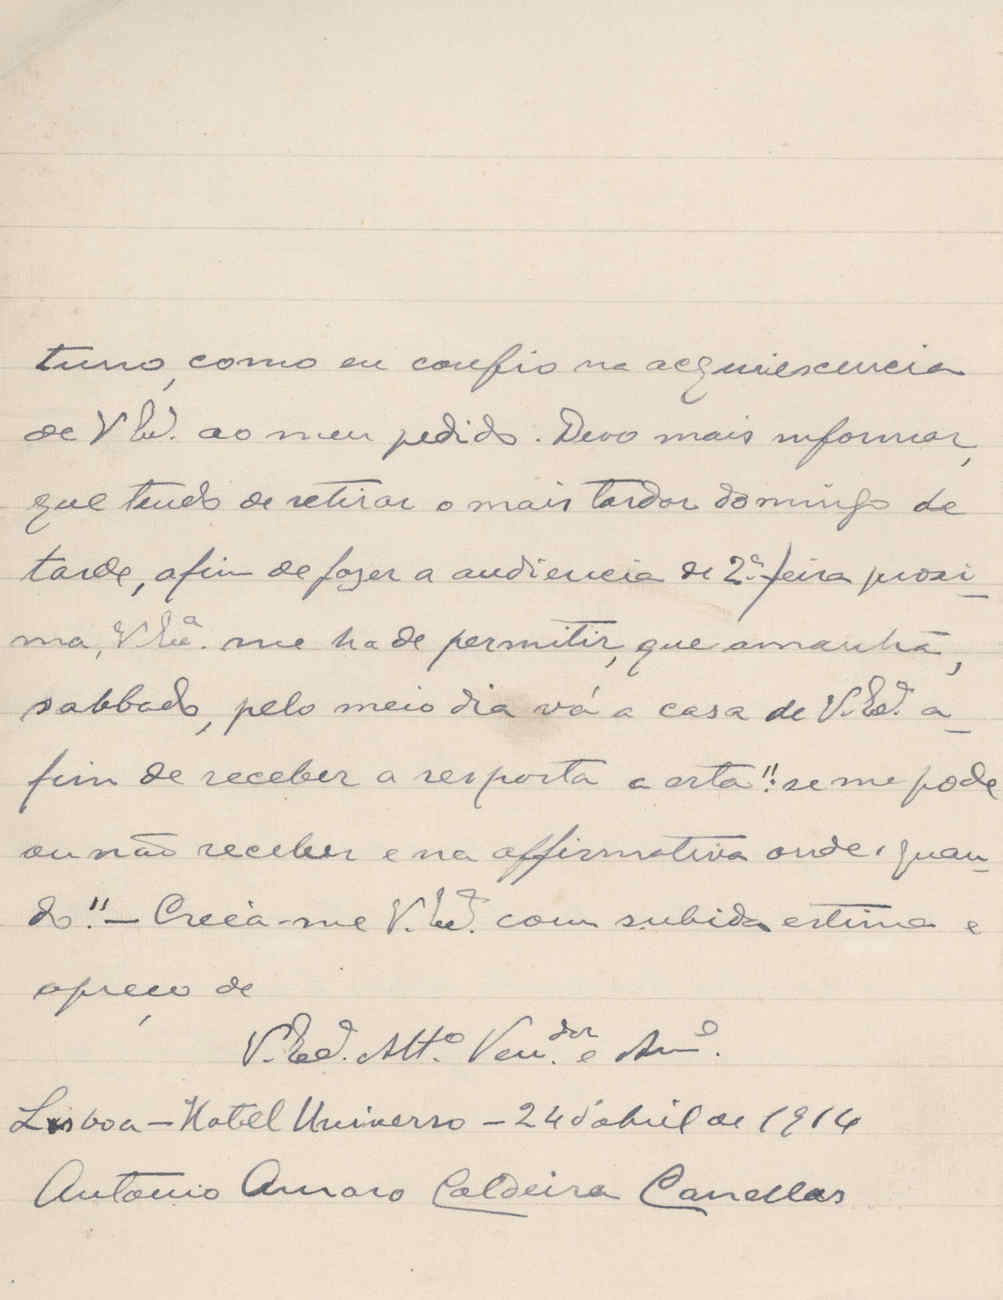 tuno, como eu confio na acquiescencia
de V Exª. ao meu pedido. Devo mais informar,
que tendo de retirar o mais tardar domingo de
tarde, afim de fazer a audiencia de 2ª-feira proxi-
ma, V Exª. me ha de permitir, que amanhã,
sabbado, pelo meio dia vá a casa de V. Exª. a-
fim de receber a resposta a esta": se me pode
ou não receber e na affirmativa onde e quan-
do". - Creia-me V. Exª. com subida estima e
apreço de
V. Exª. Attº. Vendor. e Amº.
Lisboa - Hotel Universo - 24 d'abril de 1914
Antonio Amaro Caldeira Canellas